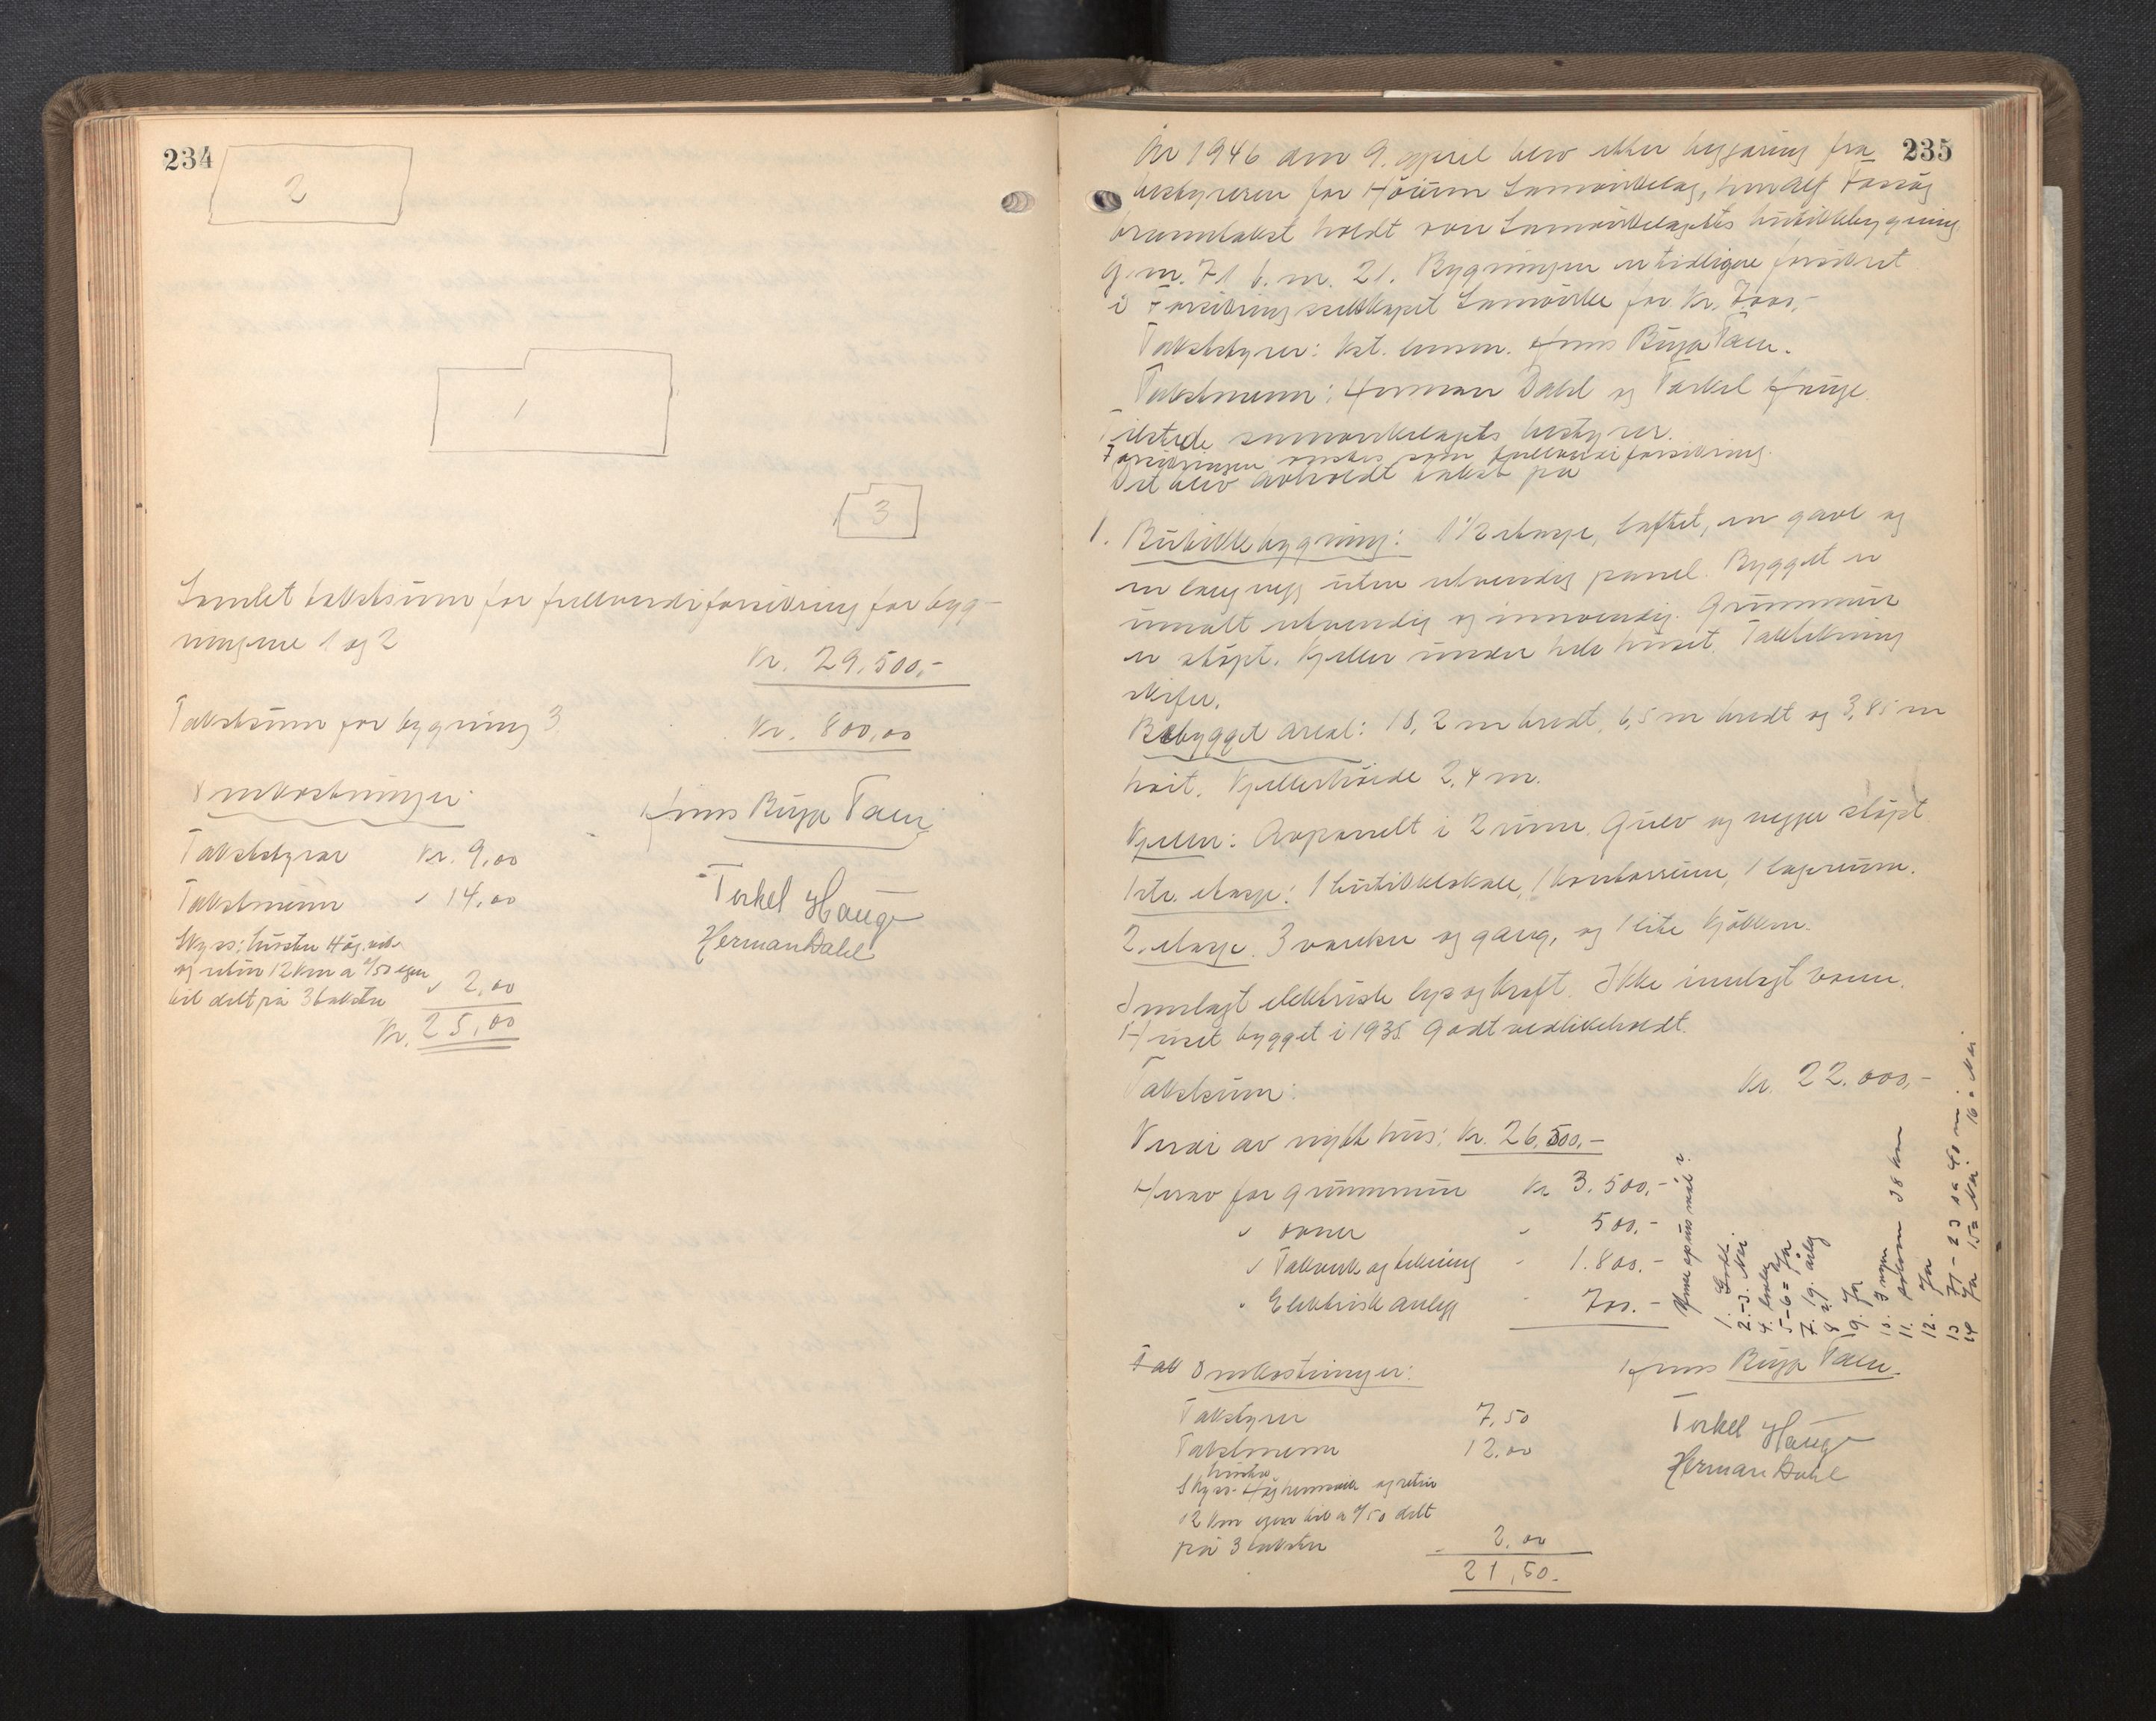 234
2
1
3
Samlet takstsum for fullverdiforsikring for byg-
ningene 1 og 2
Kr. 29.500,-
Takstsum for bygning 3
Kr. 800,00
Omkostninger:
Takststyrer Kr. 9,00
Takstmenn " 14,00
Skyss:
og retur 12 km a /50 egen
bil delt på 3 takster " 2,00
Kr. 25,00
Jens Birger
Torkel Hauge
Herman Dahl
235
År 1946 den 9. april blev efter begjæring fra
bestyreren for Samvirkelag,
branntakst holdt over Samvirkelagets butikkbygning
g.nr. 71 b.nr. 21. Bygningen er tidligere forsikret
i Forsikringsselskapet Samvirke for Kr. 7000,-
Takststyrer: Kst. lensm. Jens Birger
Takstmenn: Herman Dahl og Torkel Hauge.
Tilstede samvirkelagets bestyrer.
Forsikringen ønskes som fullverdiforsikring.
Det blev avholdt takst på
1. Butikkbygning: 1 1/2 etasje, laftet, en gavl og
en langvegg uten utvendig panel. Bygget er
umalt utvendig og innvendig. Grunnmur
er støpt. Kjeller under hele huset. Taktekning
skifer.
Bebygget areal: 10,2 m bredt, 6,5 m bredt og 3,85 m
høit. Kjellerhøide 2,4 m.
Kjeller: Avpanelt i 2 rum. Gulv og vegger støpt.
1ste etasje: 1 butikklokale, 1 kontorrum, 1 lagerrum.
2. etasje. 3 værelser og gang, og 1 lite kjøkken.
Innlagt elektrisk lys og kraft. Ikke innlagt vann.
Huset bygget i 1935. Godt vedlikeholdt.
Takstsum: Kr. 22.000,-
Verdi av nytt hus: Kr. 26.500,-
Herav for grunnmur Kr 3.500,-
" ovner " 500,-
" Takverk og tekning " 1.800,-
" Elektrisk anlegg " 700.-
1. Godt.
2.-3. Nei
4.
5-6 = Ja
7. 19. årlig
8
9. Ja
10. Ingen
11. 38 km
12. Ja
13 71 - 23 sa 40 m.
14 Ja 15 = Nei 16 = Nei
Omkostninger:
Takstyrer 7,50
Takstmenn 12,00
Skyss og retur
12 km egen bil a /50 delt
på 3 takster - 2,00
21,50-
Jens Birger
Torkel Hauge
Herman Dahl